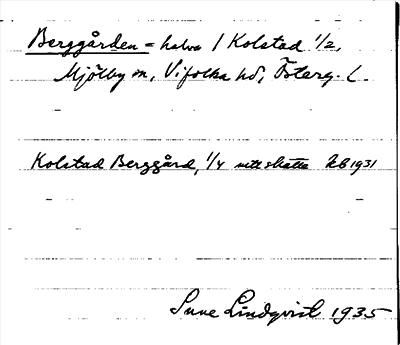 Berggården = halva 1 Kolstad 1/2,
Mjölby sn, Vifolka hd, Österg. L.
Kolstad Berggård, 1/4 mtl skatte Jb 1931
Sune Lindqvist 1935